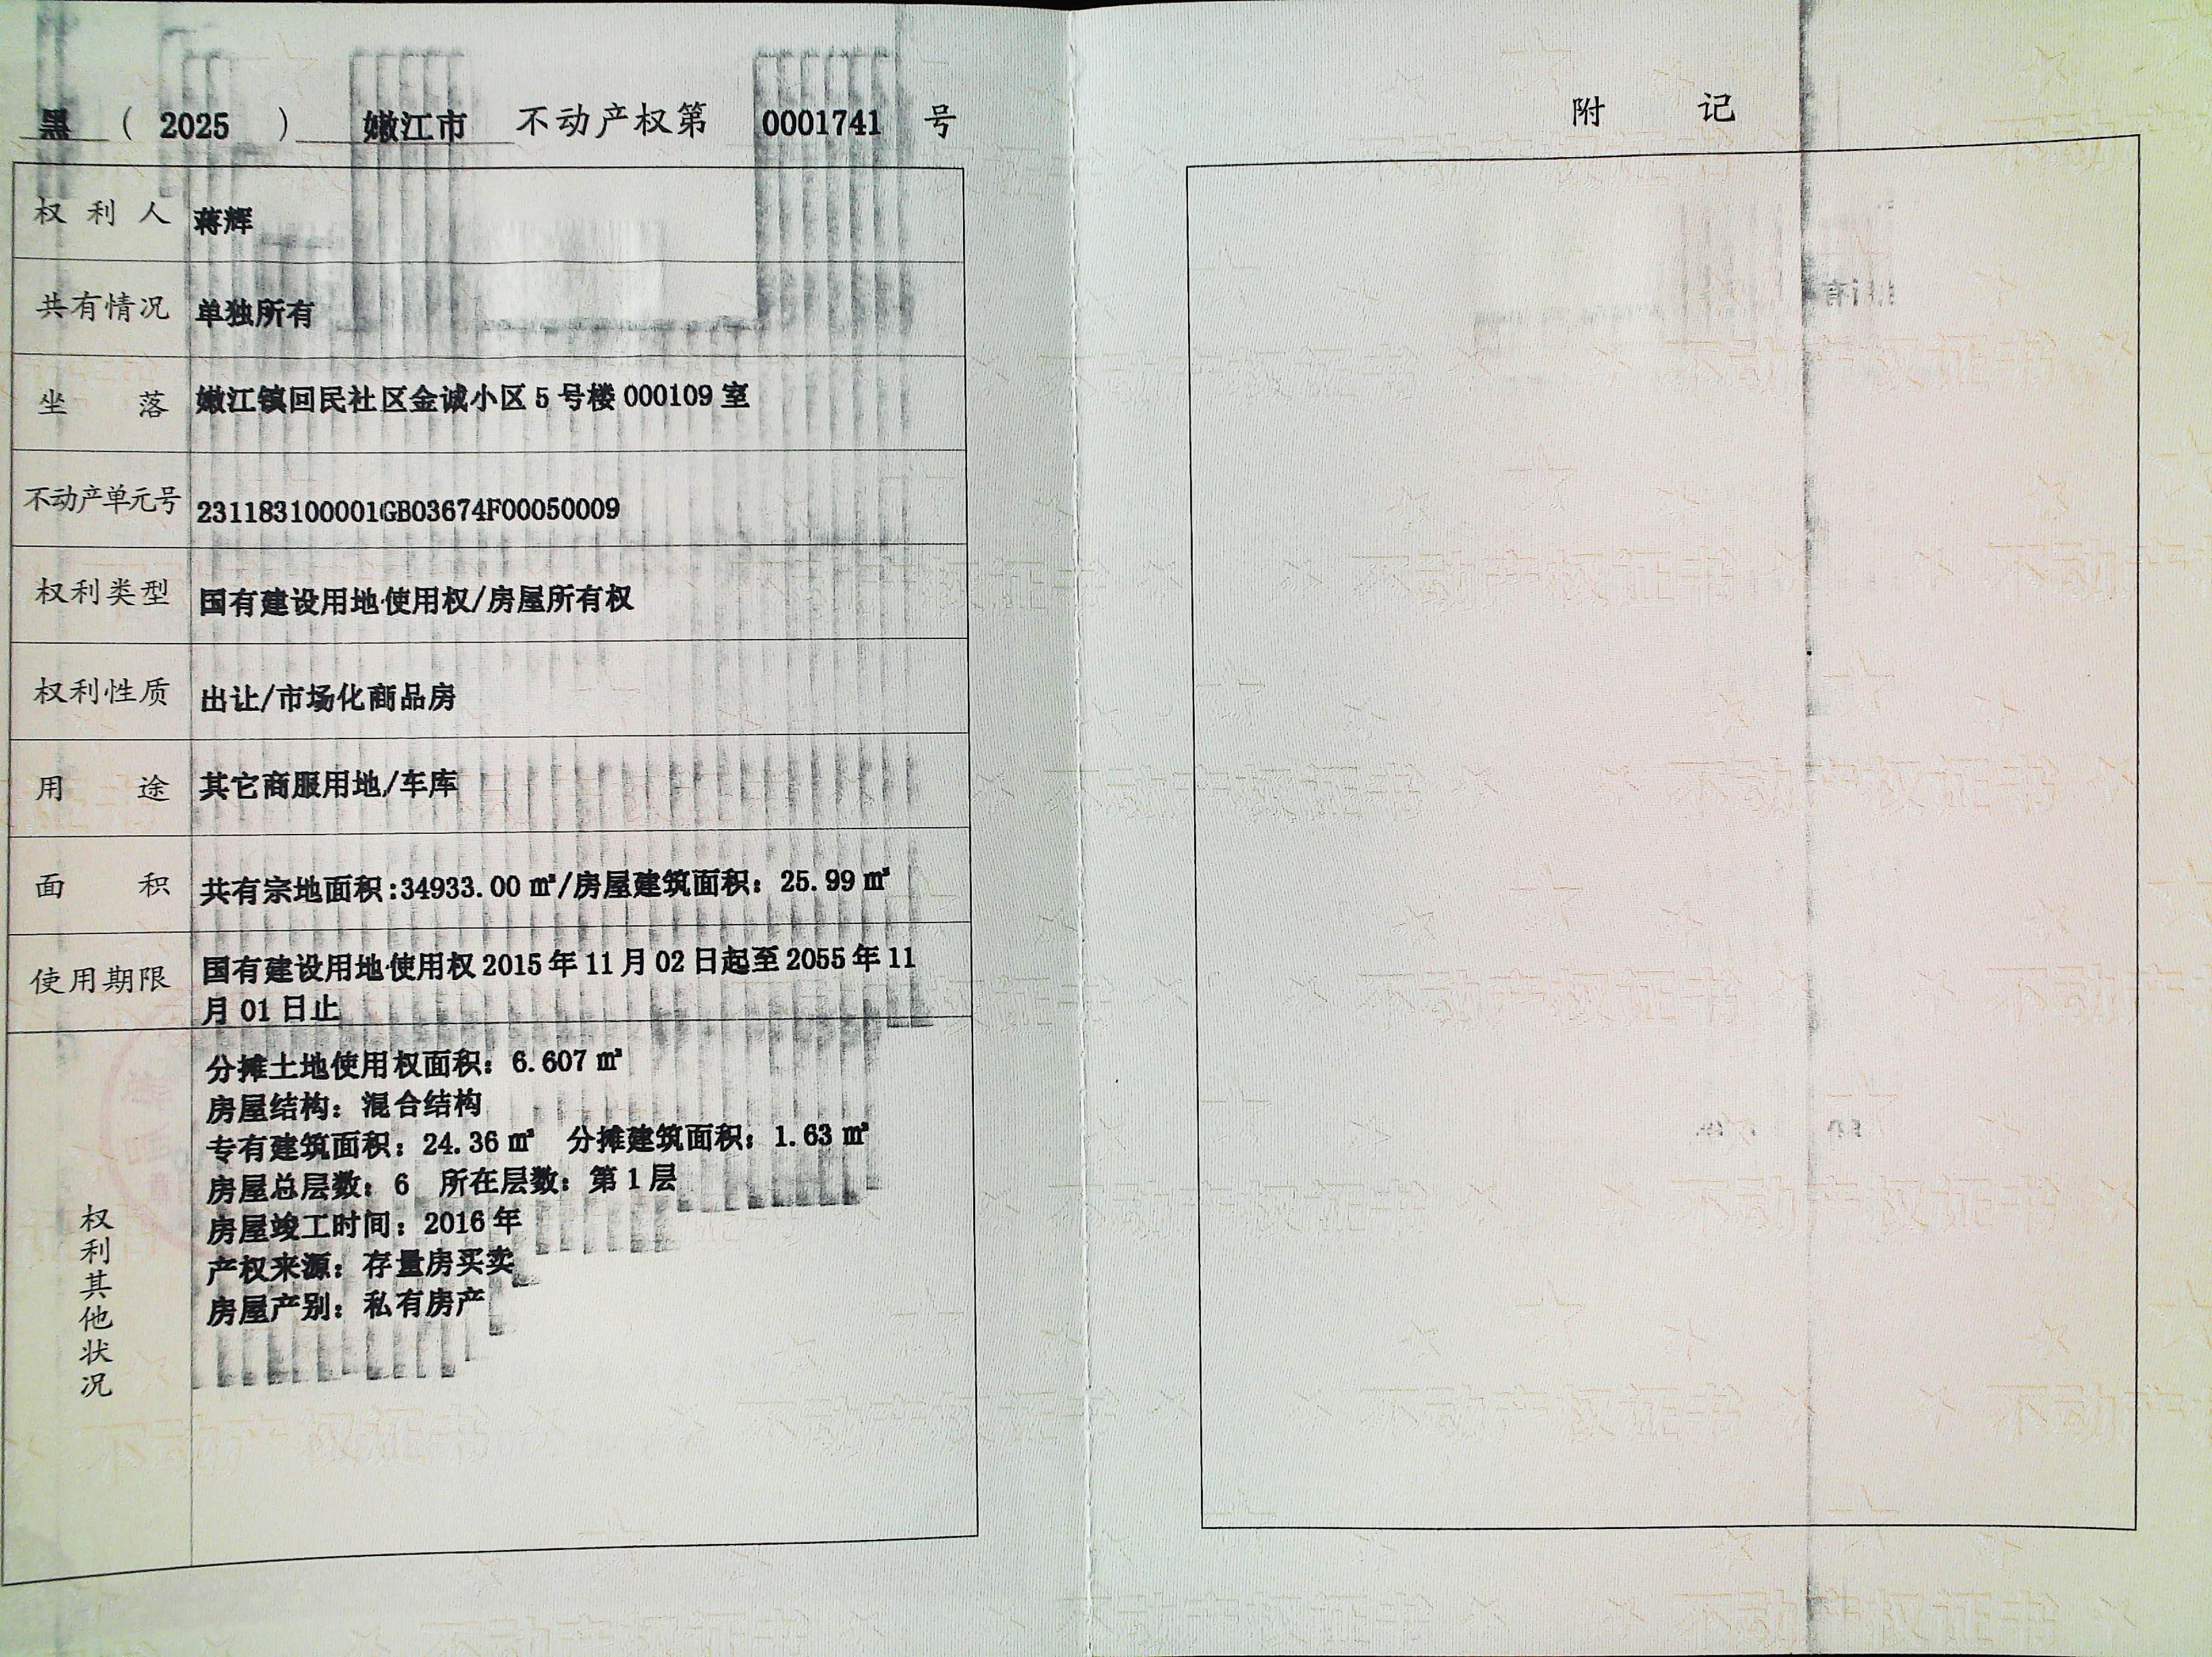 黑 ( 2025 ) 嫩江市 不动产权第 0001741 号
权利人 蒋辉
共有情况 单独所有
坐落 嫩江镇回民社区金诚小区 5 号楼 000109 室
不动产单元号 231183100001GB03674F00050009
权利类型 国有建设用地使用权/房屋所有权
权利性质 出让/市场化商品房
用途 其它商服用地/车库
面积 共有宗地面积:34933.00 ㎡/房屋建筑面积：25.99 ㎡
使用期限 国有建设用地使用权 2015 年 11 月 02 日起至 2055 年 11
月 01 日止
权利其他状况
分摊土地使用权面积：6.607 ㎡
房屋结构：混合结构
专有建筑面积：24.36 ㎡ 分摊建筑面积：1.63 ㎡
房屋总层数：6 所在层数：第 1 层
房屋竣工时间：2016 年
产权来源：存量房买卖
房屋产别：私有房产
附记